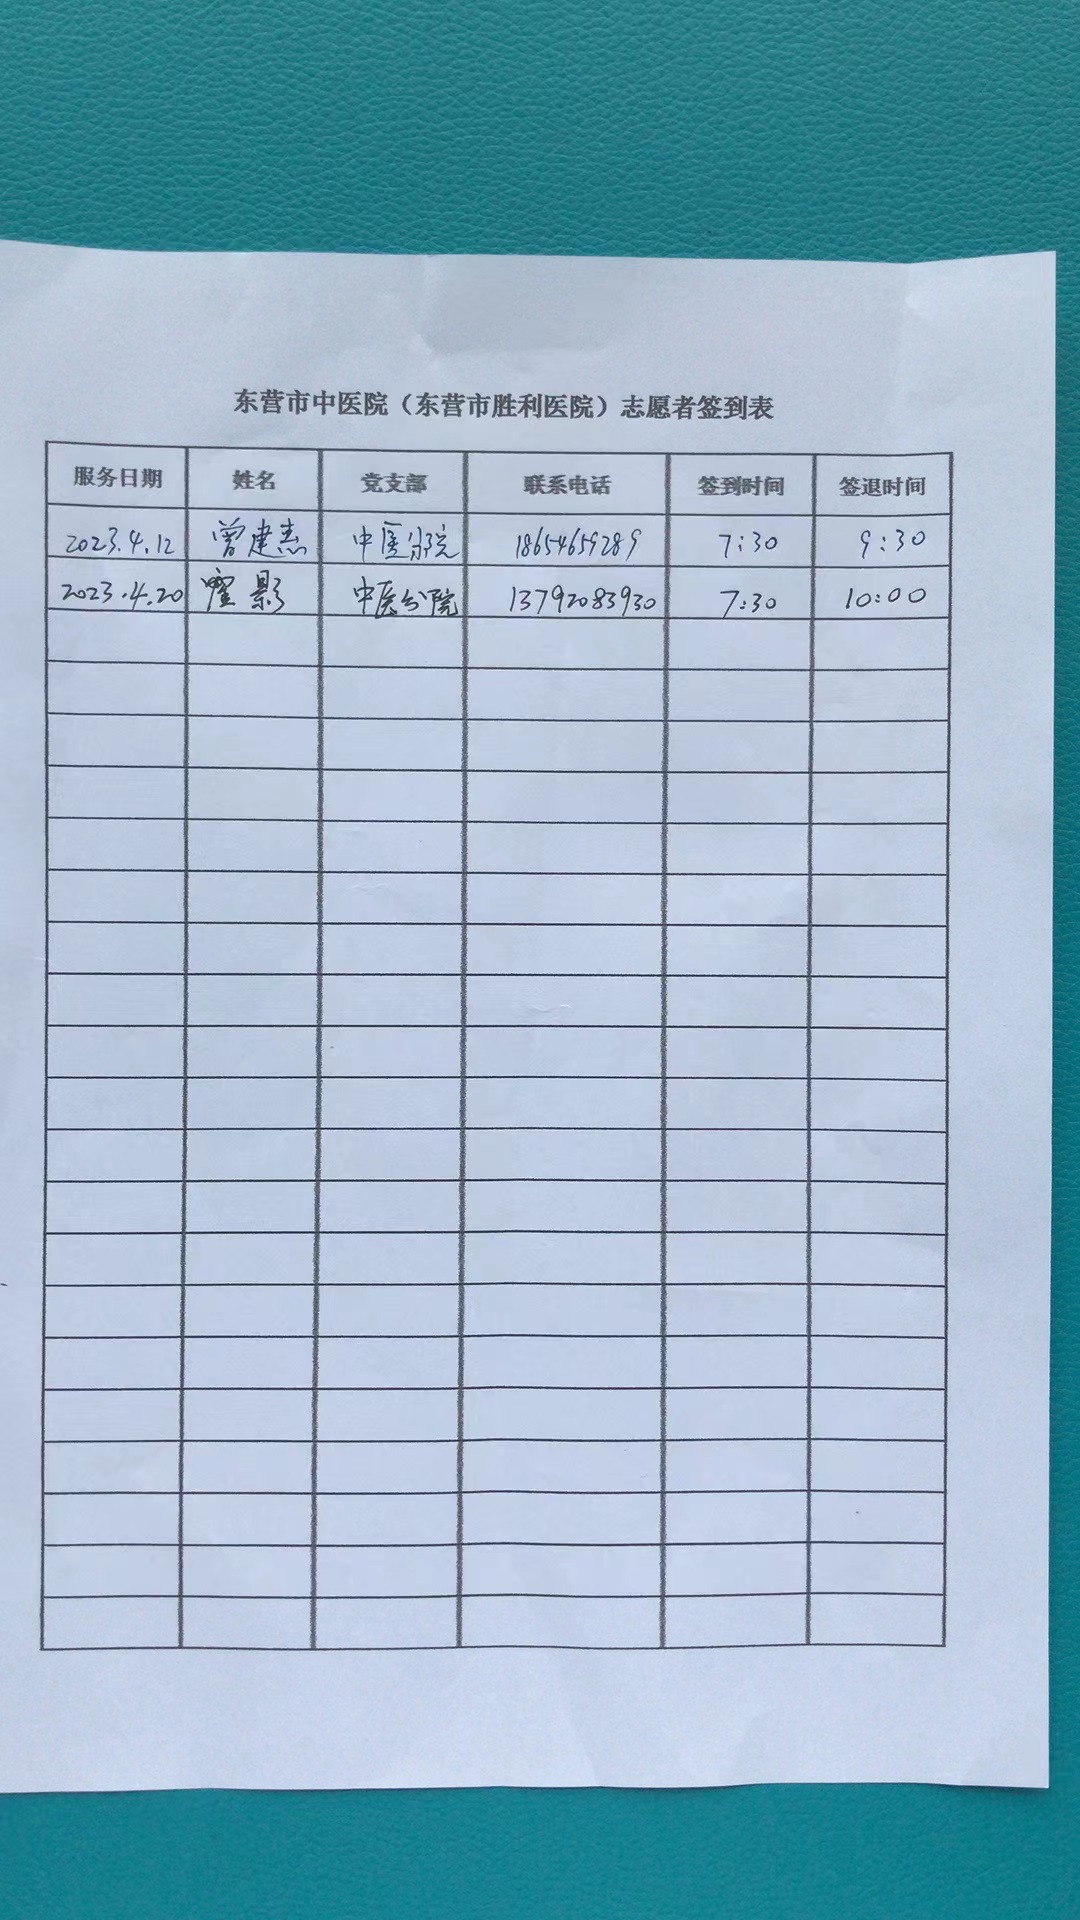 东营市中医院（东营市胜利医院）志愿者签到表
服务日期 姓名 党支部 联系电话 签到时间 签退时间
2023.4.12 曾建 中医分院 18654659289 7:30 9:30
2023.4.20 影 中医分院 13792083930 7:30 10:00